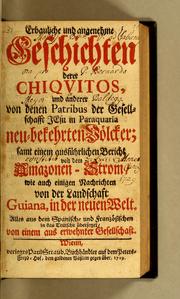 Erbauliche und angenehme
Geschichten
derer
CHIQVITOS,
und anderer
von denen Patribus der Gesell-
schafft JEsu in Paraquaria
neu-bekehrten Völcker;
samt einem ausführlichen Bericht
von dem
Amazonen-Strom,
wie auch einigen Nachrichten
von der Landschaft
Guiana, in der neuen Welt.
Alles aus dem Spanisch- und Französischen
in das Teutsche übersetzet,
von einem aus erwehnter Gesellschaft.
Wienn,
verlegts Paul Straub, Buchhändler auf dem Peters-
Freyd-Hof, dem goldenen